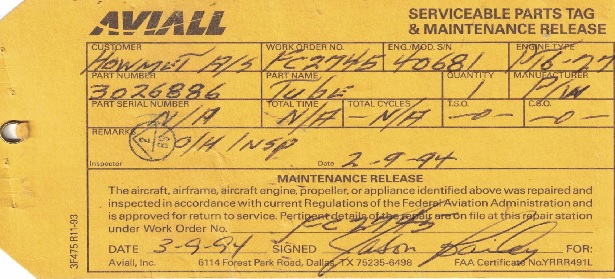 AVIALL
SERVICEABLE PARTS TAG
& MAINTENANCE RELEASE
CUSTOMER WORK ORDER NO. ENG./MOD. S/N ENGINE TYPE
HOWMET A/S FC2745 40681 PT6-27
PART NUMBER PART NAME QUANTITY MANUFACTURER
3026886 Tube 1 P/W
PART SERIAL NUMBER TOTAL TIME TOTAL CYCLES T.S.O. C.S.O.
N/A N/A N/A -0- -0-
REMARKS O/H INSP
Inspector Date 2-9-94
MAINTENANCE RELEASE
The aircraft, airframe, aircraft engine, propeller, or appliance identified above was repaired and
inspected in accordance with current Regulations of the Federal Aviation Administration and
is approved for return to service. Pertinent details of the repair are on file at this repair station
under Work Order No. FC2745
DATE 3-9-94 SIGNED Jason Bailey FOR:
Aviall, Inc. 6114 Forest Park Road, Dallas, TX 75235-6498 FAA Certificate No. YRRR491L
3F475 R11-93